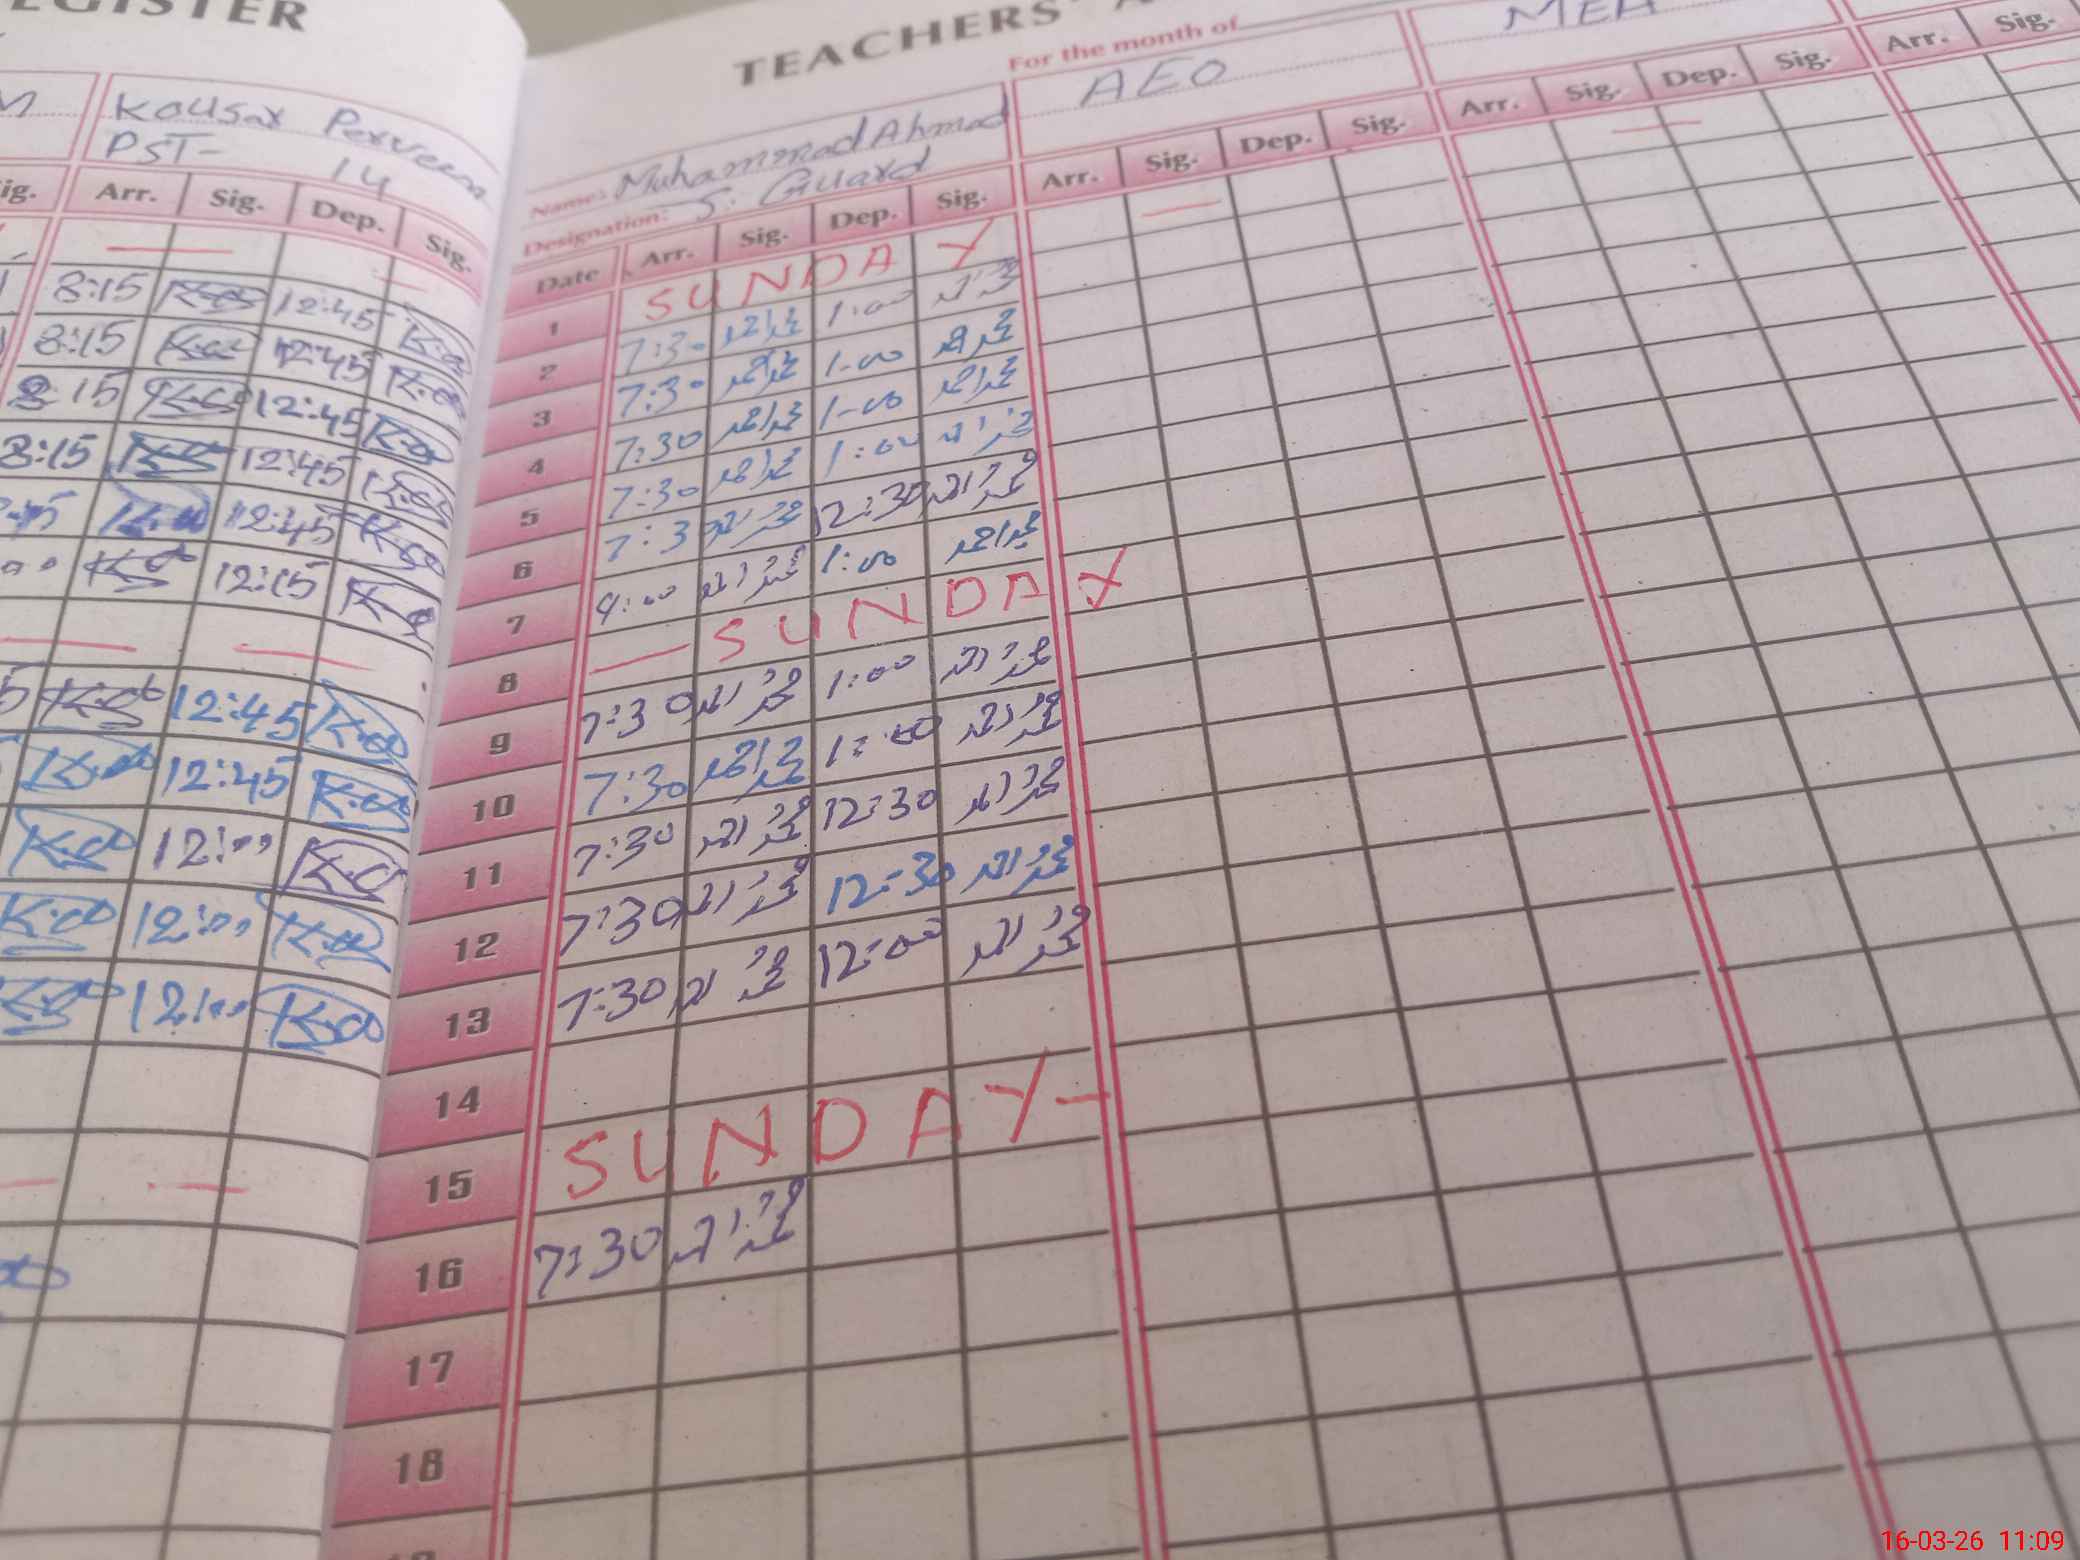 REGISTER
Kousar Perveen
PST- 14
Sig. Arr. Sig. Dep. Sig.
8:15 K.a 12:45 K.a
8:15 K.a 12:45 K.a
8:15 K.a 12:45 K.a
8:15 K.a 12:45 K.a
K.a 12:45 K.a
K.a 12:15 K.a
K.a 12:45 K.a
K.a 12:45 K.a
K.a 12:00 K.a
K.a 12:00 K.a
K.a 12:00 K.a
TEACHERS'
For the month of
Name: Muhammad Ahmad
Designation: S. Guard
AEO
MEA
Date Arr. Sig. Dep. Sig. Arr. Sig. Dep. Sig. Arr. Sig. Dep. Sig. Arr. Sig.
1 SUNDAY
2 7:30 محمد احمد 1:00 محمد احمد
3 7:30 محمد احمد 1-00 محمد احمد
4 7:30 محمد احمد 1-00 محمد احمد
5 7:30 محمد احمد 1:00 محمد احمد
6 7:3 محمد احمد 12:30 محمد احمد
7 9:00 محمد احمد 1:00 محمد احمد
8 — SUNDAY
9 7:30 محمد احمد 1:00 محمد احمد
10 7:30 محمد احمد 1:00 محمد احمد
11 7:30 محمد احمد 12:30 محمد احمد
12 7:30 محمد احمد 12:30 محمد احمد
13 7:30 محمد احمد 12:00 محمد احمد
14
15 SUNDAY-
16 7:30 محمد احمد
17
18
16-03-26 11:09